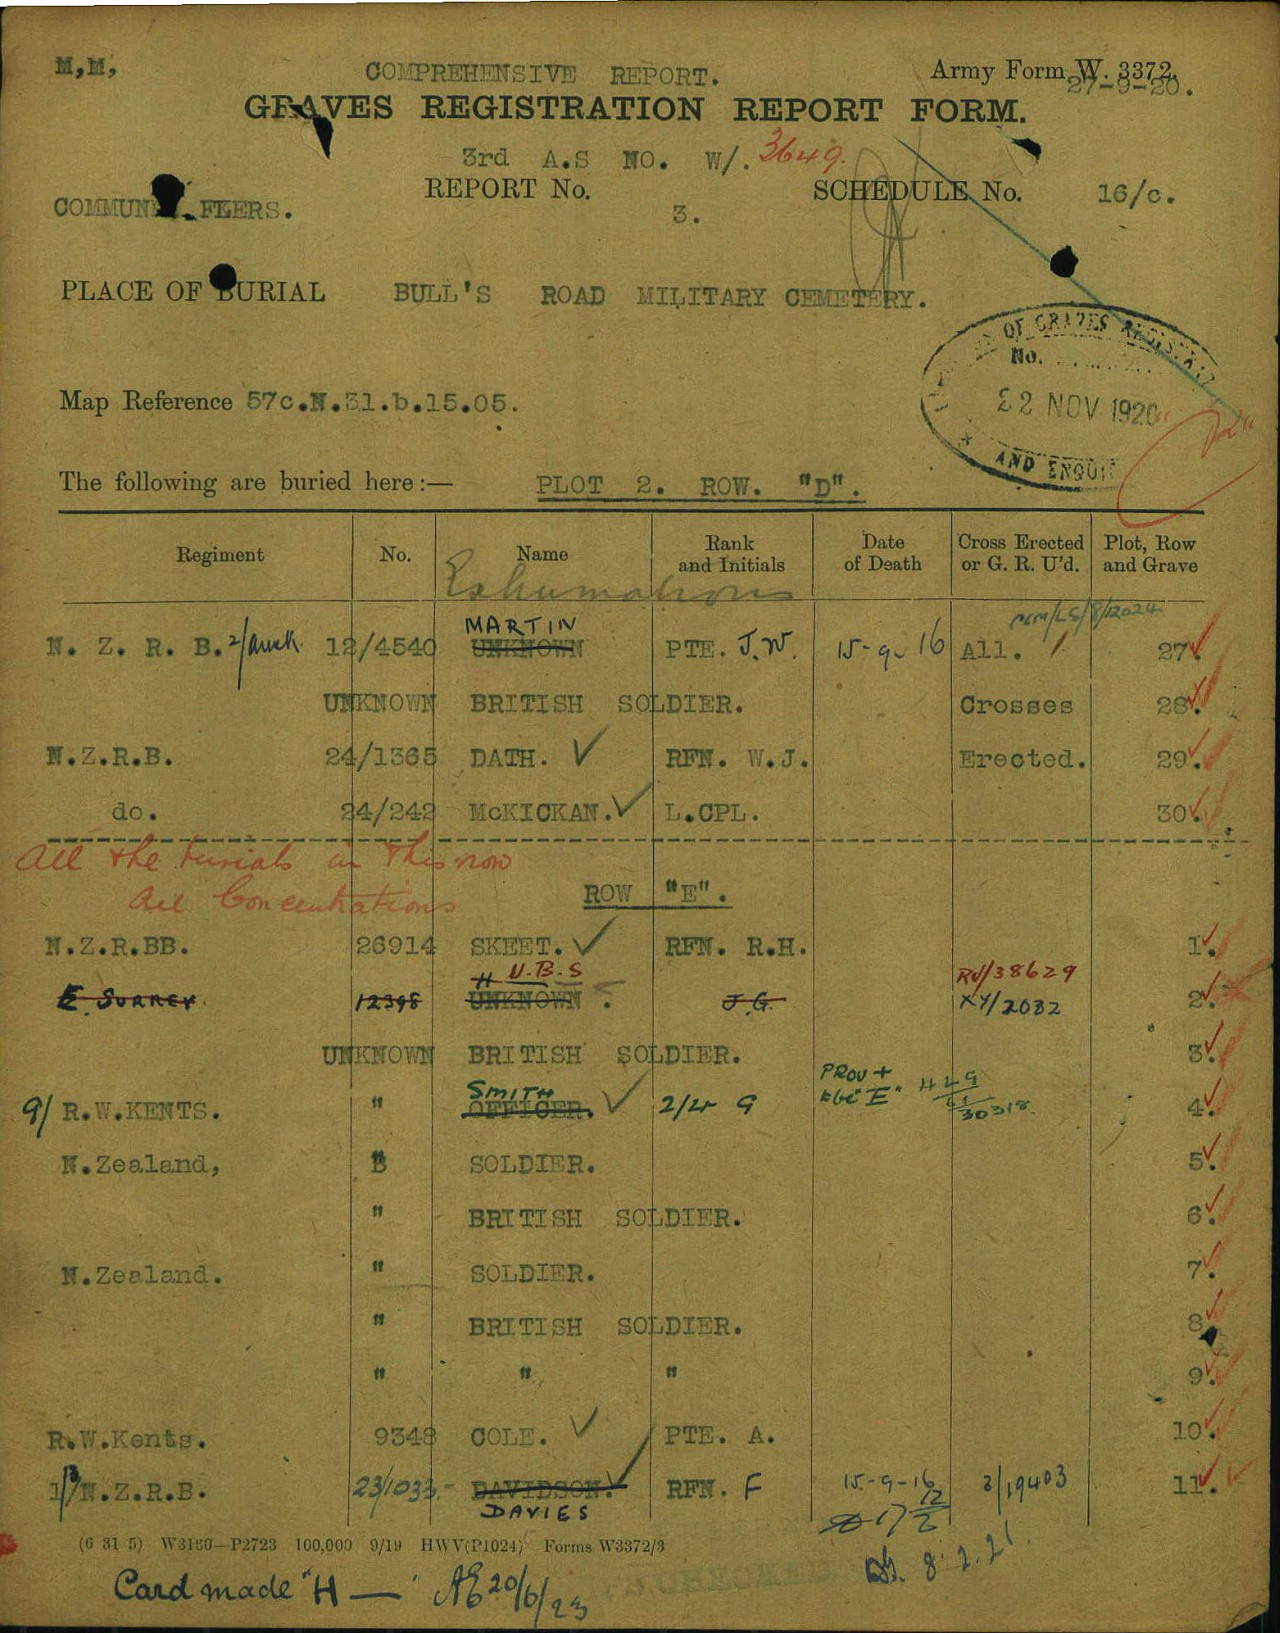 M,M,
COMPREHENSIVE REPORT.
Army Form W. 3372.
27-9-20.
GRAVES REGISTRATION REPORT FORM.
3rd A.S NO. W/. 3649.
REPORT No. 3.
SCHEDULE No. 16/c.
COMMUN FLERS.
PLACE OF BURIAL BULL'S ROAD MILITARY CEMETERY.
OF GRAVES REGIST
No.
22 NOV 1920
AND ENQUI
Map Reference 57c.N.31.b.15.05.
The following are buried here:— PLOT 2. ROW. "D".
Regiment No. Name Rank and Initials Date of Death Cross Erected or G. R. U'd. Plot, Row and Grave
Exhumations
MARTIN
N. Z. R. B. 2/Auck. 12/4540 UNKNOWN PTE. J.W. 15-9-16 All. 27.
UNKNOWN BRITISH SOLDIER. Crosses 28.
N.Z.R.B. 24/1365 DATH. RFN. W.J. Erected. 29.
do. 24/242 McKICKAN. L.CPL. 30.
All the burials in this row
are Concentrations
ROW "E".
N.Z.R.BB. 26914 SKEET. RFN. R.H. 1.
U.B.S RU/38629
E. SURREY 12398 UNKNOWN . J.G. XY/2082 2.
UNKNOWN BRITISH SOLDIER. 3.
SMITH PROV +
9/ R.W.KENTS. " OFFICER. 2/Lt G "E" 30318 4.
N.Zealand, " SOLDIER. 5.
" BRITISH SOLDIER. 6.
N.Zealand. " SOLDIER. 7.
" BRITISH SOLDIER. 8.
" " " 9.
R.W.Kents. 9348 COLE. PTE. A. 10.
1/3 N.Z.R.B. 23/1033.- DAVIDSON. RFN. F 15-9-16 3/19403 11.
DAVIES
(6 31 5) W3160—P2723 100,000 9/19 HWV(P1024) Forms W3372/3
8.2.21.
Card made "H —" AE 20/6/23